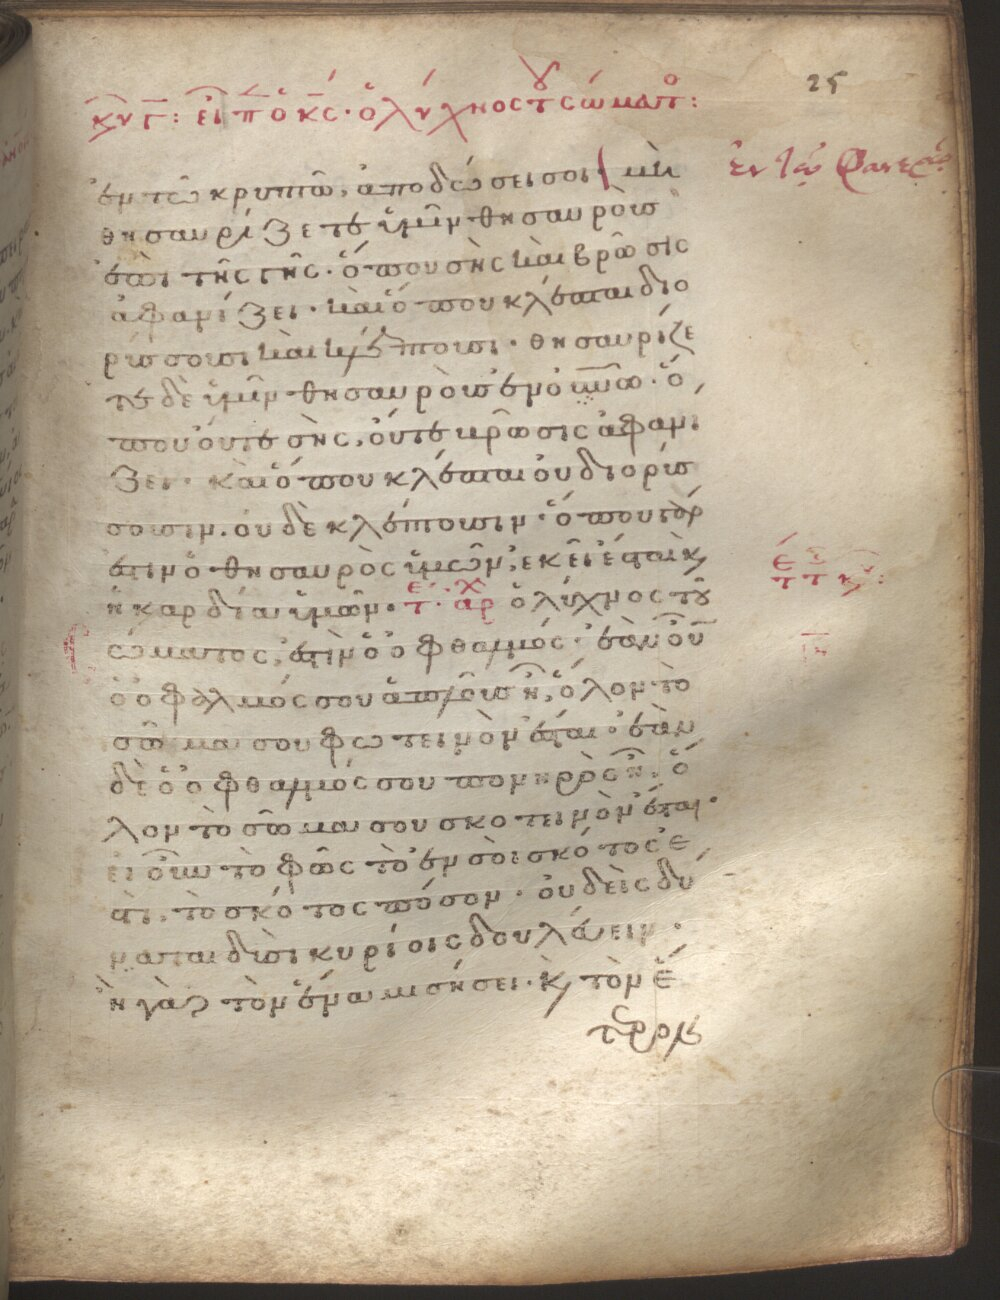 25
κυ γ: εἶπ ὁ κς· ὁ λύχνος τοῦ σώματο:
ἐν τῶ κρυπτῶ, ἀποδώσει σοι· μὴ
ἐν τῶ φανερῶ
θησαυρίζετε ὑμῖν θησαυροὺσ
ἐπὶ τῆς γῆς· ὅπου σὴς καὶ βρῶσις
ἀφανίζει· καὶ ὅπου κλέπται διο
ρύσσουσι καὶ κλέπτουσι· θησαυρίζε
τε δὲ ὑμῖν θησαυροὺσ ἐν οὐνῶ· ὅ
που οὔτε σὴς, οὔτε βρῶσις ἀφανί
ζει· καὶ ὅπου κλέπται οὐ διορύσ
σουσιν. οὐδὲ κλέπτουσιν· ὅπου γάρ
ἐστιν ὁ θησαυρὸς ὑμῶν, ἐκεῖ ἔσται κ
ἡ καρδία ὑμῶν· τε· ἀρχ ὁ λύχνος τοῦ
σώματος, ἐστὶν ὁ ὀφθαλμός· ἐὰν οὖν
ὁ ὀφθαλμός σου ἁπλοῦσ ἦ, ὅλον τὸ
σῶμα σου φωτεινὸν ἔσται· ἐὰν
δὲ ὁ ὀφθαλμός σου πονηρὸς ἦ, ὅ
λον τὸ σῶμα σου σκοτεινὸν ἔσται·
εἰ οὖν τὸ φῶς τὸ ἐν σοὶ σκότος ἐ
στι, τὸ σκότος πόσον· οὐδεὶς δύ
ναται δυσὶ κυρίοις δουλεύειν·
ἢ γὰρ τὸν ἕνα μισήσει· κ τὸν ἕ
τερον